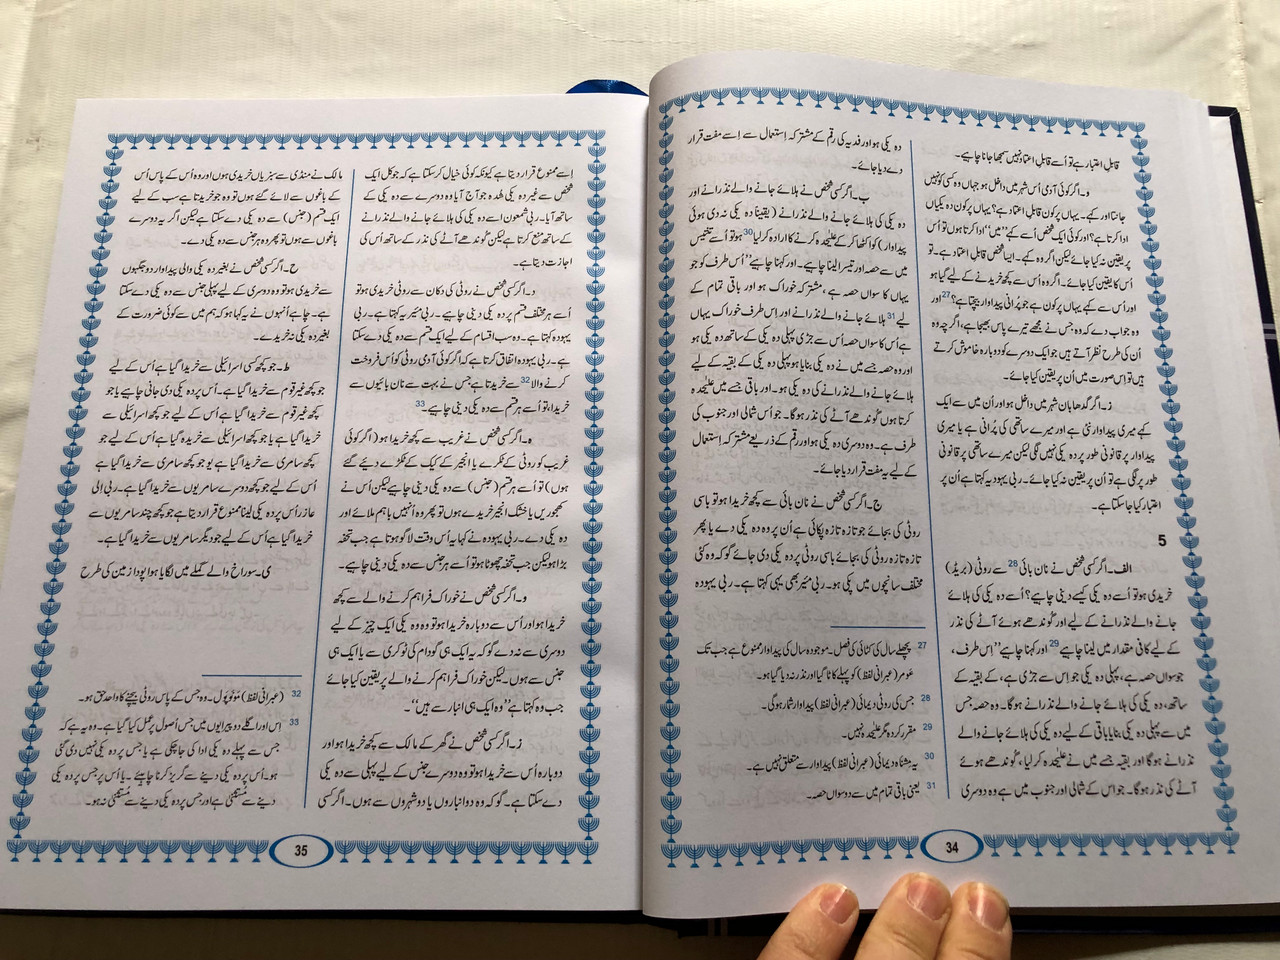 قابلِ اعتبار ہے تو اُسے قابلِ اعتماد نہیں سمجھا جانا چاہیے۔
و۔ اگر کوئی آدمی اُس شہر میں داخل ہو جہاں وہ کسی کو نہیں
جانتا اور کہے۔ یہاں پر کون قابلِ اعتماد ہے؟ یہاں پر کون دہ یکیاں
ادا کرتا ہے؟ اور کوئی ایک شخص اُسے کہے ’’میں‘‘ ادا کرتا ہوں تو اُس
پر یقین نہ کیا جائے لیکن اگر وہ کہے۔ ایسا شخص قابلِ اعتماد ہے۔ تو
اُس کا یقین کیا جائے۔ اگر وہ اُس سے کچھ خریدنے کے لیے گیا ہو
اور اُس سے کہے یہاں پر کون ہے جو پُرانی پیداوار بیچتا ہے؟27 اور
وہ جواب دے کہ وہ جس نے مجھے تیرے پاس بھیجا ہے، اگرچہ وہ
اُن کی طرح نظر آتے ہیں جو ایک دوسرے کو دوبارہ خاموش کرتے
ہیں تو اِس صورت میں اُن پر یقین کیا جائے۔
ز۔ اگر گدھا بان شہر میں داخل ہو اور اُن میں سے ایک
کہے میری پیداوار نئی ہے اور میرے ساتھی کی پُرانی ہے یا میری
پیداوار پر قانونی طور پر دہ یکی نہیں لگی لیکن میرے ساتھی پر قانونی
طور پر لگی ہے تو اُن پر یقین نہ کیا جائے۔ ربی یہودہ یہ کہتا ہے اُن پر
اعتبار کیا جا سکتا ہے۔
5
الف۔ اگر کسی شخص نے نان بائی28 سے روٹی (بریڈ)
خریدی ہو تو اُسے دہ یکی کیسے دینی چاہیے؟ اُسے دہ یکی کی ہلائے
جانے والے نذرانے کے لیے اور گوندھے ہوئے آٹے کی نذر
کے لیے کافی مقدار میں لینا چاہیے29 اور کہنا چاہیے ’’اِس طرف،
جو سواں حصہ ہے، پہلی دہ یکی جو اِس سے جڑی ہے، کے بقیہ کے
ساتھ، دہ یکی کی ہلائے جانے والے نذرانے ہو گا۔ وہ حصہ جس
میں سے پہلی دہ یکی بنایا باقی کے لیے دہ یکی کی ہلائے جانے والے
نذرانے ہو گا اور بقیہ جسے میں نے علیٰحدہ کر لیا، گوندھے ہوئے
آٹے کی نذر ہو گا۔ جو اس کے شمالی اور جنوب میں ہے وہ دوسری
دہ یکی ہو اور فدیہ کی رقم کے مشترکہ اِستعمال سے اِسے مفت قرار
دے دیا جائے۔
ب۔ اگر کسی شخص نے ہلائے جانے والے نذرانے اور
دہ یکی کی ہلائے جانے والے نذرانے (یقیناً دہ یکی نہ دی ہوئی
پیداوار) کو اکٹھا کر کے علیٰحدہ کرنے کا ارادہ کر لیا30 ہو تو اُسے تنتیس
میں سے حصہ اور تیسرا لینا چاہیے۔ اور کہنا چاہیے ’’اُس طرف کو جو
یہاں کا سواں حصہ ہے، مشترکہ خوراک ہو اور باقی تمام کے
لیے31 ہلائے جانے والے نذرانے اور اِس طرف خوراک یہاں
ہے اُس کا سواں حصہ اُس سے جڑی پہلی دہ یکی کے ساتھ دہ یکی ہو
اور وہ حصہ جسے میں نے دہ یکی بنایا ہو پہلی دہ یکی کے بقیہ کے لیے
ہلائے جانے والے نذرانے کی دہ یکی ہو۔ اور باقی جسے میں علیٰحدہ
کرتا ہوں گوندھے آٹے کی نذر ہو گا۔ جو اُس شمالی اور جنوب کی
طرف ہے۔ وہ دوسری دہ یکی ہو اور رقم کے ذریعے مشترکہ اِستعمال
کے لیے یہ مفت قرار دیا جائے۔
ج۔ اگر کسی شخص نے نان بائی سے کچھ خریدا ہو تو باسی
روٹی کی بجائے جو تازہ تازہ پکائی ہے اُن پر وہ دہ یکی دے یا پھر
تازہ تازہ روٹی کی بجائے باسی روٹی پر دہ یکی دی جائے گو کہ وہ کئی
مختلف سانچوں میں پکی ہو۔ ربی مئیر بھی یہی کہتا ہے۔ ربی یہودہ
27 پچھلے سال کی کٹائی کی فصل۔ موجودہ سال کی پیداوار ممنوع ہے جب تک
عَومر (عبرانی لفظ) کو پہلے کاٹا گیا اور نذر نہ دیا گیا ہو۔
28 جس کی روٹی دیمائی (عبرانی لفظ) پیداوار شمار ہو گی۔
29 مقرر کردہ مگر علیٰحدہ نہیں۔
30 یہ مشناہ دیمائی (عبرانی لفظ) پیداوار سے متعلق نہیں ہے۔
31 یعنی باقی تمام میں سے دسواں حصہ۔
34
اِسے ممنوع قرار دیتا ہے کیونکہ کوئی خیال کر سکتا ہے کہ جو کل ایک
شخص سے بغیر دہ یکی ملا ہو وہ جو آج آیا وہ دوسرے سے دہ یکی کے
ساتھ آیا۔ ربی شمعون اسے دہ یکی کی ہلائے جانے والے نذرانے
کے ساتھ منع کرتا ہے لیکن گوندھے آٹے کی نذر کے ساتھ اُس کی
اجازت دیتا ہے۔
د۔ اگر کسی شخص نے روٹی کی دکان سے روٹی خریدی ہو تو
اُسے ہر مختلف قسم پر دہ یکی دینی چاہیے۔ ربی مئیر یہ کہتا ہے۔ ربی
یہودہ کہتا ہے۔ وہ سب اقسام کے لیے ایک قسم سے دہ یکی دے سکتا
ہے۔ ربی یہودہ اتفاق کرتا ہے کہ اگر کوئی آدمی روٹی کو اُس فروخت
کرنے والا32 سے خریدتا ہے جس نے بہت سے نان بائیوں سے
خریدا، تو اُسے ہر قسم سے دہ یکی دینی چاہیے۔33
ہ۔ اگر کسی شخص نے غریب سے کچھ خریدا ہو (اگر کوئی
غریب کو روٹی کے ٹکڑے یا انجیر کے کیک کے ٹکڑے دیئے گئے
ہوں) تو اُسے ہر قسم (جنس) سے دہ یکی دینی چاہیے لیکن اُس نے
کھجوریں یا خشک انجیر خریدے ہوں تو پھر وہ اُنہیں باہم ملائے اور
دہ یکی دے۔ ربی یہودہ نے کہا یہ اُس وقت لاگو ہوتا ہے جب تحفہ
بڑا ہو لیکن جب تحفہ چھوٹا ہو تو اُسے ہر جنس سے دہ یکی دینی چاہیے۔
و۔ اگر کسی شخص نے خوراک فراہم کرنے والے سے کچھ
خریدا ہو اور اُس سے دوبارہ خریدا ہو تو وہ دہ یکی ایک چیز کے لیے
دوسری سے نہ دے گو کہ یہ ایک ہی گودام کی ٹوکری سے یا ایک ہی
جنس سے ہوں۔ لیکن خوراک فراہم کرنے والے پر یقین کیا جائے
جب وہ کہتا ہے ’’وہ ایک ہی انبار سے ہیں‘‘۔
ز۔ اگر کسی شخص نے گھر کے مالک سے کچھ خریدا ہو اور
دوبارہ اُس سے خریدا ہو تو وہ دوسرے جنس کے لیے پہلی سے دہ یکی
دے سکتا ہے۔ گو کہ وہ دو انباروں یا دو شہروں سے ہوں۔ اگر کسی
مالک نے منڈی سے سبزیاں خریدی ہوں اور وہ اُس کے پاس اُس
کے باغوں سے لائے گئے ہوں تو وہ جو خریدتا ہے سب کے لیے
ایک قسم (جنس) سے دہ یکی دے سکتا ہے لیکن اگر یہ دوسرے
باغوں سے ہوں تو پھر وہ ہر جنس سے دہ یکی دے۔
ح۔ اگر کسی شخص نے بغیر دہ یکی والی پیداوار دو جگہوں
سے خریدی ہو تو وہ دوسری کے لیے پہلی جنس سے دہ یکی دے سکتا
ہے۔ چاہے اُنہوں نے یہ کہا ہو کہ ہم میں سے کوئی ضرورت کے
بغیر دہ یکی نہ خریدے۔
ط۔ جو کچھ کسی اسرائیلی سے خریدا گیا ہے اُس کے لیے
جو کچھ غیر قوم سے خریدا گیا ہے۔ اُس پر دہ یکی دی جانی چاہیے یا جو
کچھ غیر قوم سے خریدا گیا ہے اُس کے لیے جو کچھ اسرائیلی سے
خریدا گیا ہے یا جو کچھ اسرائیلی سے خریدہ گیا ہے اُس کے لیے جو
کچھ سامری سے خریدا گیا ہے یو جو کچھ سامری سے خریدا گیا ہے
اُس کے لیے جو کچھ دوسرے سامریوں سے خریدا گیا ہے۔ ربی الی
عازر اُس پر دہ یکی لینا ممنوع قرار دیتا ہے جو کچھ چند سامریوں سے
خریدا گیا ہے اُس کے لیے جو دیگر سامریوں سے خریدا گیا ہے۔
ی۔ سوراخ والے گملے میں لگایا ہوا پودا زمین کی طرح
32 (عبرانی لفظ) مَونوپول۔ وہ جس کے پاس روٹی بیچنے کا واحد حق ہو۔
33 اِس اور اگلے دو پیرایوں میں جس اُصول پر عمل کیا گیا ہے۔ وہ یہ ہے کہ
جس سے پہلے دہ یکی ادا کی جا چکی ہے یا جس پر دہ یکی نہیں دی گئی
ہو۔ اُس پر دہ یکی دینے سے گریز کرنا چاہئے۔ یا اُس پر جس پر دہ یکی
دینے سے مُستثنیٰ ہے اور جس پر دہ یکی دینے سے مُستثنیٰ نہ ہو۔
35